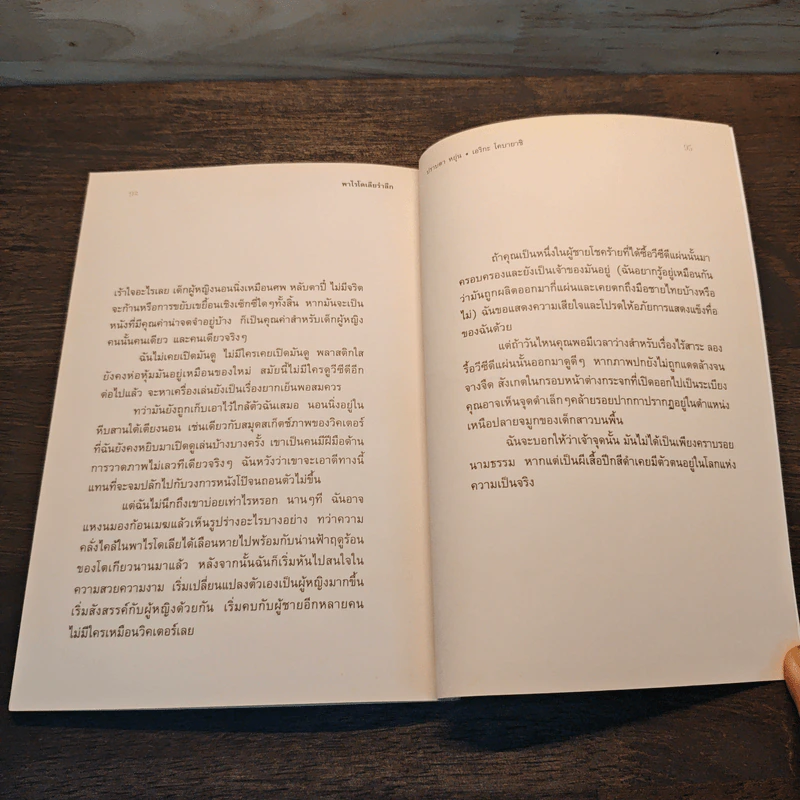 94
พาไรโดเลียรำลึก
เร้าใจอะไรเลย เด็กผู้หญิงนอนนิ่งเหมือนศพ หลับตาปี๋ ไม่มีจริต
จะก้านหรือการขยับเขยื้อนเชิงเซ็กซี่ใดๆทั้งสิ้น หากมันจะเป็น
หนังที่มีคุณค่าน่าจดจำอยู่บ้าง ก็เป็นคุณค่าสำหรับเด็กผู้หญิง
คนนั้นคนเดียว และคนเดียวจริงๆ
ฉันไม่เคยเปิดมันดู ไม่มีใครเคยเปิดมันดู พลาสติกใส
ยังคงห่อหุ้มมันอยู่เหมือนของใหม่ สมัยนี้ไม่มีใครดูวีซีดีอีก
ต่อไปแล้ว จะหาเครื่องเล่นยังเป็นเรื่องยากเย็นพอสมควร
ทว่ามันยังถูกเก็บเอาไว้ใกล้ตัวฉันเสมอ นอนนิ่งอยู่ใน
หีบสานใต้เตียงนอน เช่นเดียวกับสมุดสเก็ตช์ภาพของวิคเตอร์
ที่ฉันยังคงหยิบมาเปิดดูเล่นบ้างบางครั้ง เขาเป็นคนมีฝีมือด้าน
การวาดภาพไม่เลวทีเดียวจริงๆ ฉันหวังว่าเขาจะเอาดีทางนี้
แทนที่จะจมปลักไปกับวงการหนังโป๊จนถอนตัวไม่ขึ้น
แต่ฉันไม่นึกถึงเขาบ่อยเท่าไรหรอก นานๆที ฉันอาจ
แหงนมองก้อนเมฆแล้วเห็นรูปร่างอะไรบางอย่าง ทว่าความ
คลั่งไคล้ในพาไรโดเลียได้เลือนหายไปพร้อมกับน่านฟ้าฤดูร้อน
ของโตเกียวนานมาแล้ว หลังจากนั้นฉันก็เริ่มหันไปสนใจใน
ความสวยความงาม เริ่มเปลี่ยนแปลงตัวเองเป็นผู้หญิงมากขึ้น
เริ่มสังสรรค์กับผู้หญิงด้วยกัน เริ่มคบกับผู้ชายอีกหลายคน
ไม่มีใครเหมือนวิคเตอร์เลย
ปราบดา หยุ่น • เอริกะ โคบายาชิ
95
ถ้าคุณเป็นหนึ่งในผู้ชายโชคร้ายที่ได้ซื้อวีซีดีแผ่นนั้นมา
ครอบครองและยังเป็นเจ้าของมันอยู่ (ฉันอยากรู้อยู่เหมือนกัน
ว่ามันถูกผลิตออกมากี่แผ่นและเคยตกถึงมือชายไทยบ้างหรือ
ไม่) ฉันขอแสดงความเสียใจและโปรดให้อภัยการแสดงแข็งทื่อ
ของฉันด้วย
แต่ถ้าวันไหนคุณพอมีเวลาว่างสำหรับเรื่องไร้สาระ ลอง
รื้อวีซีดีแผ่นนั้นออกมาดูดีๆ หากภาพปกยังไม่ถูกแดดล้างจน
จางจืด สังเกตในกรอบหน้าต่างกระจกที่เปิดออกไปเป็นระเบียง
คุณอาจเห็นจุดดำเล็กๆคล้ายรอยปากกาปรากฏอยู่ในตำแหน่ง
เหนือปลายจมูกของเด็กสาวบนพื้น
ฉันจะบอกให้ว่าเจ้าจุดนั้น มันไม่ได้เป็นเพียงคราบรอย
นามธรรม หากแต่เป็นผีเสื้อปีกสีดำเคยมีตัวตนอยู่ในโลกแห่ง
ความเป็นจริง